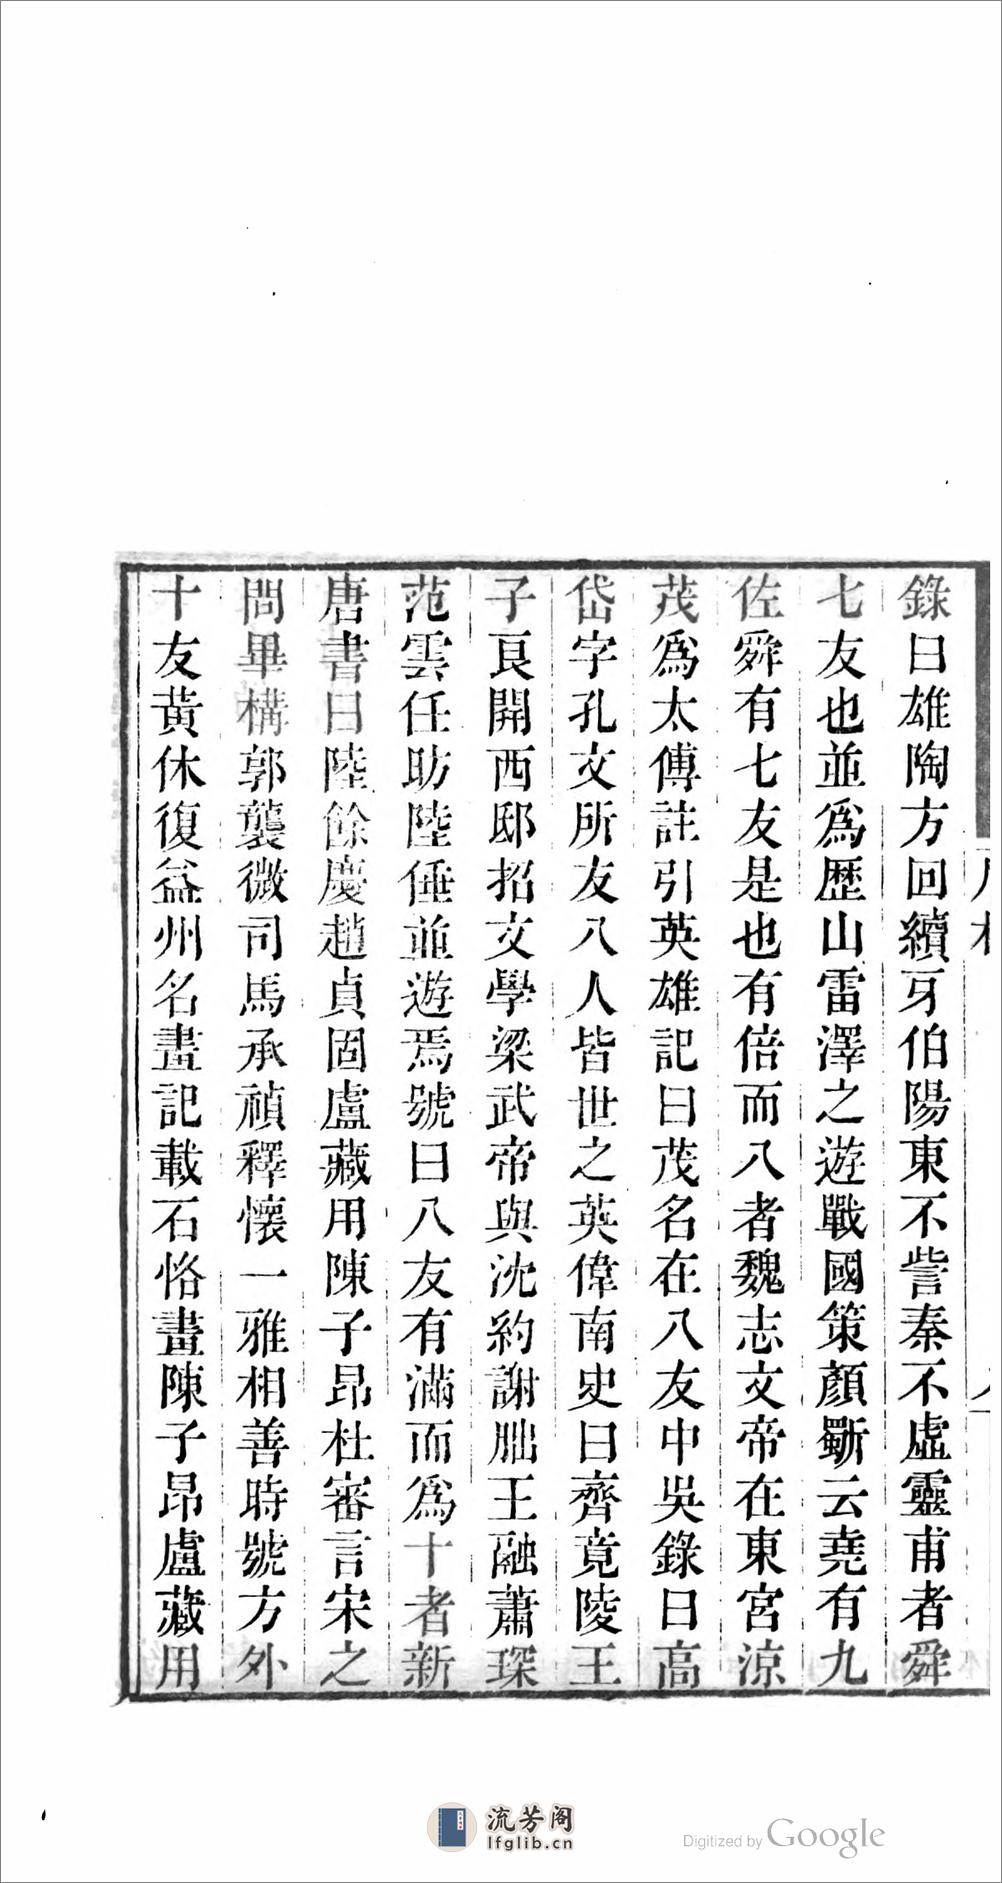 錄曰雄陶方回續牙伯陽東不訾秦不虛靈甫者舜
七友也並爲歷山雷澤之遊戰國策顏斶云堯有九
佐舜有七友是也有倍而八者魏志文帝在東宮涼
茂爲太傅註引英雄記曰茂名在八友中吳錄曰高
岱字孔文所友八人皆世之英偉南史曰齊竟陵王
子良開西邸招文學梁武帝與沈約謝朏王融蕭琛
范雲任昉陸倕並遊焉號曰八友有滿而爲十者新
唐書曰陸餘慶趙貞固盧藏用陳子昂杜審言宋之
問畢構郭襲微司馬承禎釋懷一雅相善時號方外
十友黃休復益州名畫記載石恪畫陳子昂盧藏用
流芳阁
lfglib.cn
Digitized by Google